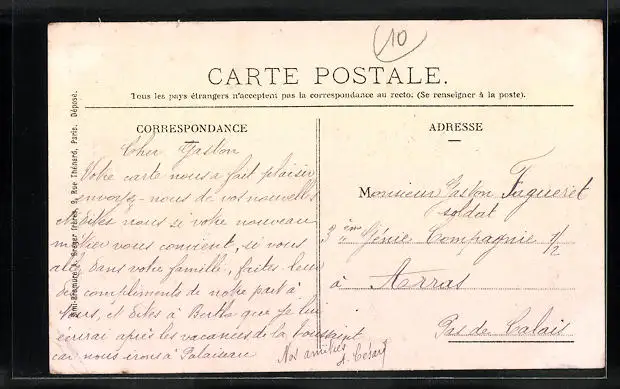 10
CARTE POSTALE.
Tous les pays étrangers n'acceptent pas la correspondance au recto. (Se renseigner à la poste).
CORRESPONDANCE
Cher Gaston
Votre carte nous a fait plaisir
envoyez-nous de vos nouvelles
et dites nous si votre nouveau
métier vous convient, si vous
allez dans votre famille, faites-leur
des compliments de notre part à
tous, et dites à Berthe que je lui
écrirai après les vacances de la Toussaint
car nous irons à Palaiseau
Nos amitiés
A. César
ADRESSE
Monsieur Gaston Fagueret
soldat
3 ème Génie Compagnie 1/2
à Arras
Pas de Calais
Breger frères, 9, Rue Thénard, Paris. Déposé.